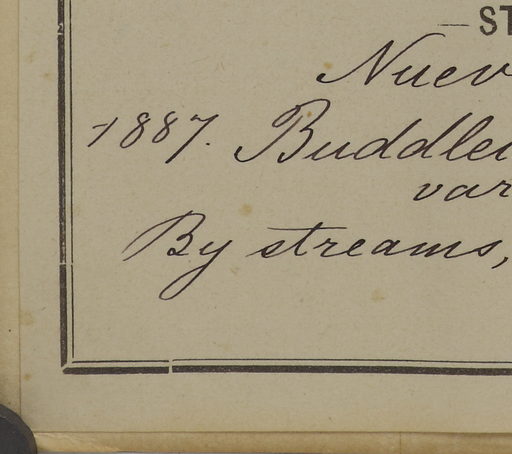 — ST
Nuev
1887. Buddlei
var
By streams,